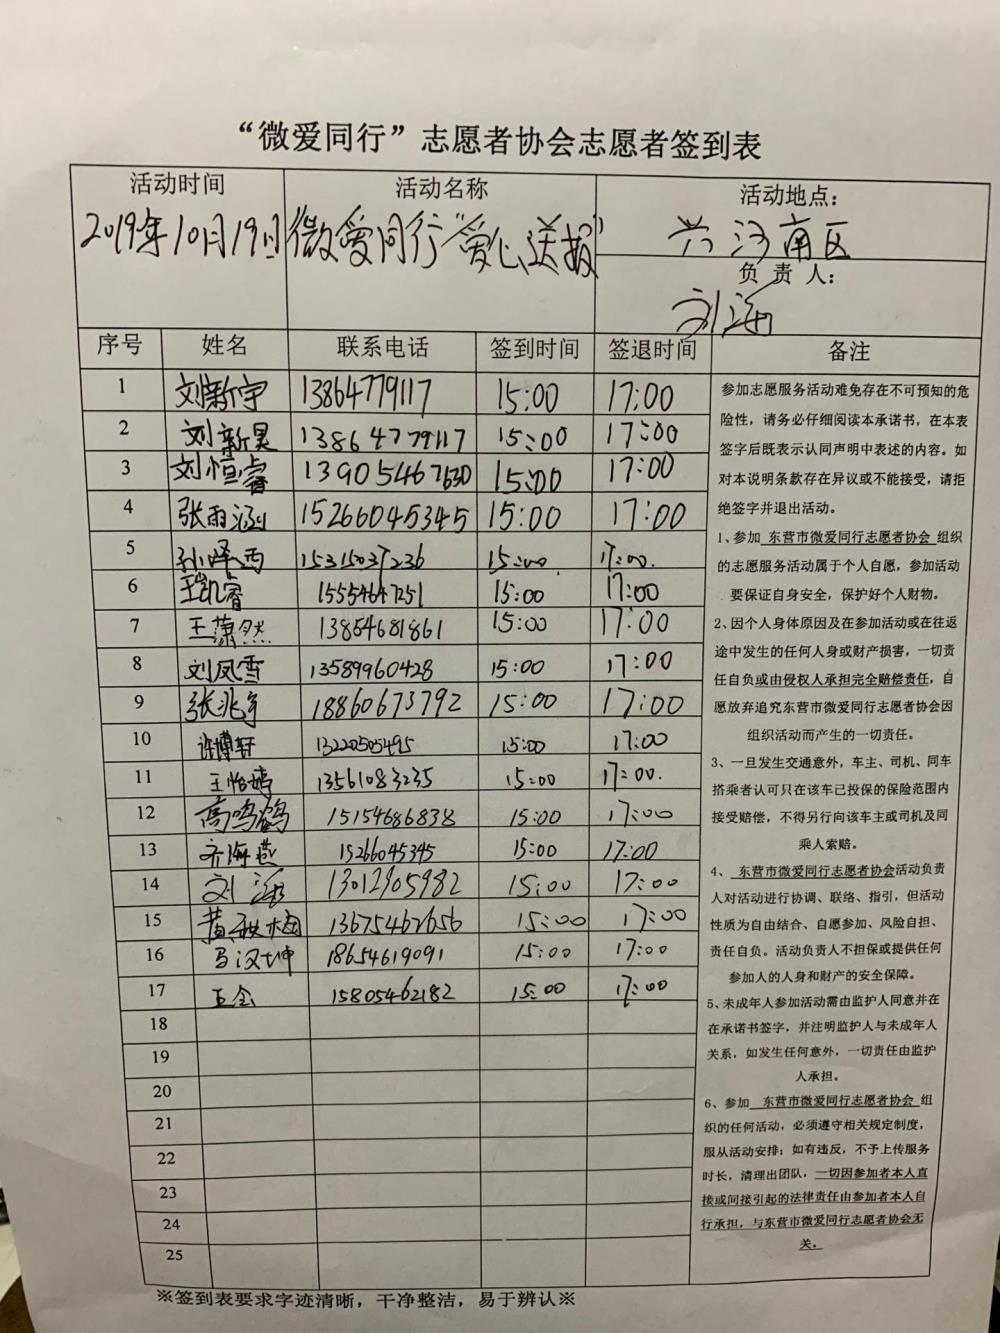 “微爱同行”志愿者协会志愿者签到表
活动时间 活动名称 活动地点：
2019年10月19日 “微爱同行”爱心送报 兴河南区
负 责 人：
刘海
序号 姓名 联系电话 签到时间 签退时间 备注
1 刘新宇 13864779117 15:00 17:00
2 刘新昊 13864779117 15:00 17:00
3 刘恒睿 13905467630 15:00 17:00
4 张雨涵 15266045345 15:00 17:00
5 孙泽西 15315037236 15:00 17:00.
6 王凯睿 15554647251 15:00 17:00
7 王萧然 13854681861 15:00 17:00
8 刘凤雪 13589960428 15:00 17:00
9 张兆宇 18860673792 15:00 17:00
10 许博轩 13220505495 15:00 17:00
11 王怡婷 13561083235 15:00 17:00.
12 高鸣鹤 15154686838 15:00 17:00
13 齐海燕 15266045345 15:00 17:00
14 刘海 13012905982 15:00 17:00
15 黄秋梅 13675462656 15:00 17:00
16 马汉坤 18654619091 15:00 17:00
17 王会 15805462182 15:00 17:00
18
19
20
21
22
23
24
25
参加志愿服务活动难免存在不可预知的危
险性，请务必仔细阅读本承诺书，在本表
签字后既表示认同声明中表述的内容。如
对本说明条款存在异议或不能接受，请拒
绝签字并退出活动。
1、参加 东营市微爱同行志愿者协会 组织
的志愿服务活动属于个人自愿，参加活动
要保证自身安全，保护好个人财物。
2、因个人身体原因及在参加活动或在往返
途中发生的任何人身或财产损害，一切责
任自负或由侵权人承担完全赔偿责任，自
愿放弃追究东营市微爱同行志愿者协会因
组织活动而产生的一切责任。
3、一旦发生交通意外，车主、司机、同车
搭乘者认可只在该车已投保的保险范围内
接受赔偿，不得另行向该车主或司机及同
乘人索赔。
4、 东营市微爱同行志愿者协会活动负责
人对活动进行协调、联络、指引，但活动
性质为自由结合、自愿参加、风险自担、
责任自负。活动负责人不担保或提供任何
参加人的人身和财产的安全保障。
5、未成年人参加活动需由监护人同意并在
在承诺书签字，并注明监护人与未成年人
关系，如发生任何意外，一切责任由监护
人承担。
6、参加 东营市微爱同行志愿者协会 组
织的任何活动，必须遵守相关规定制度，
服从活动安排；如有违反，不予上传服务
时长，清理出团队，一切因参加者本人直
接或间接引起的法律责任由参加者本人自
行承担，与东营市微爱同行志愿者协会无
关。
※签到表要求字迹清晰，干净整洁，易于辨认※